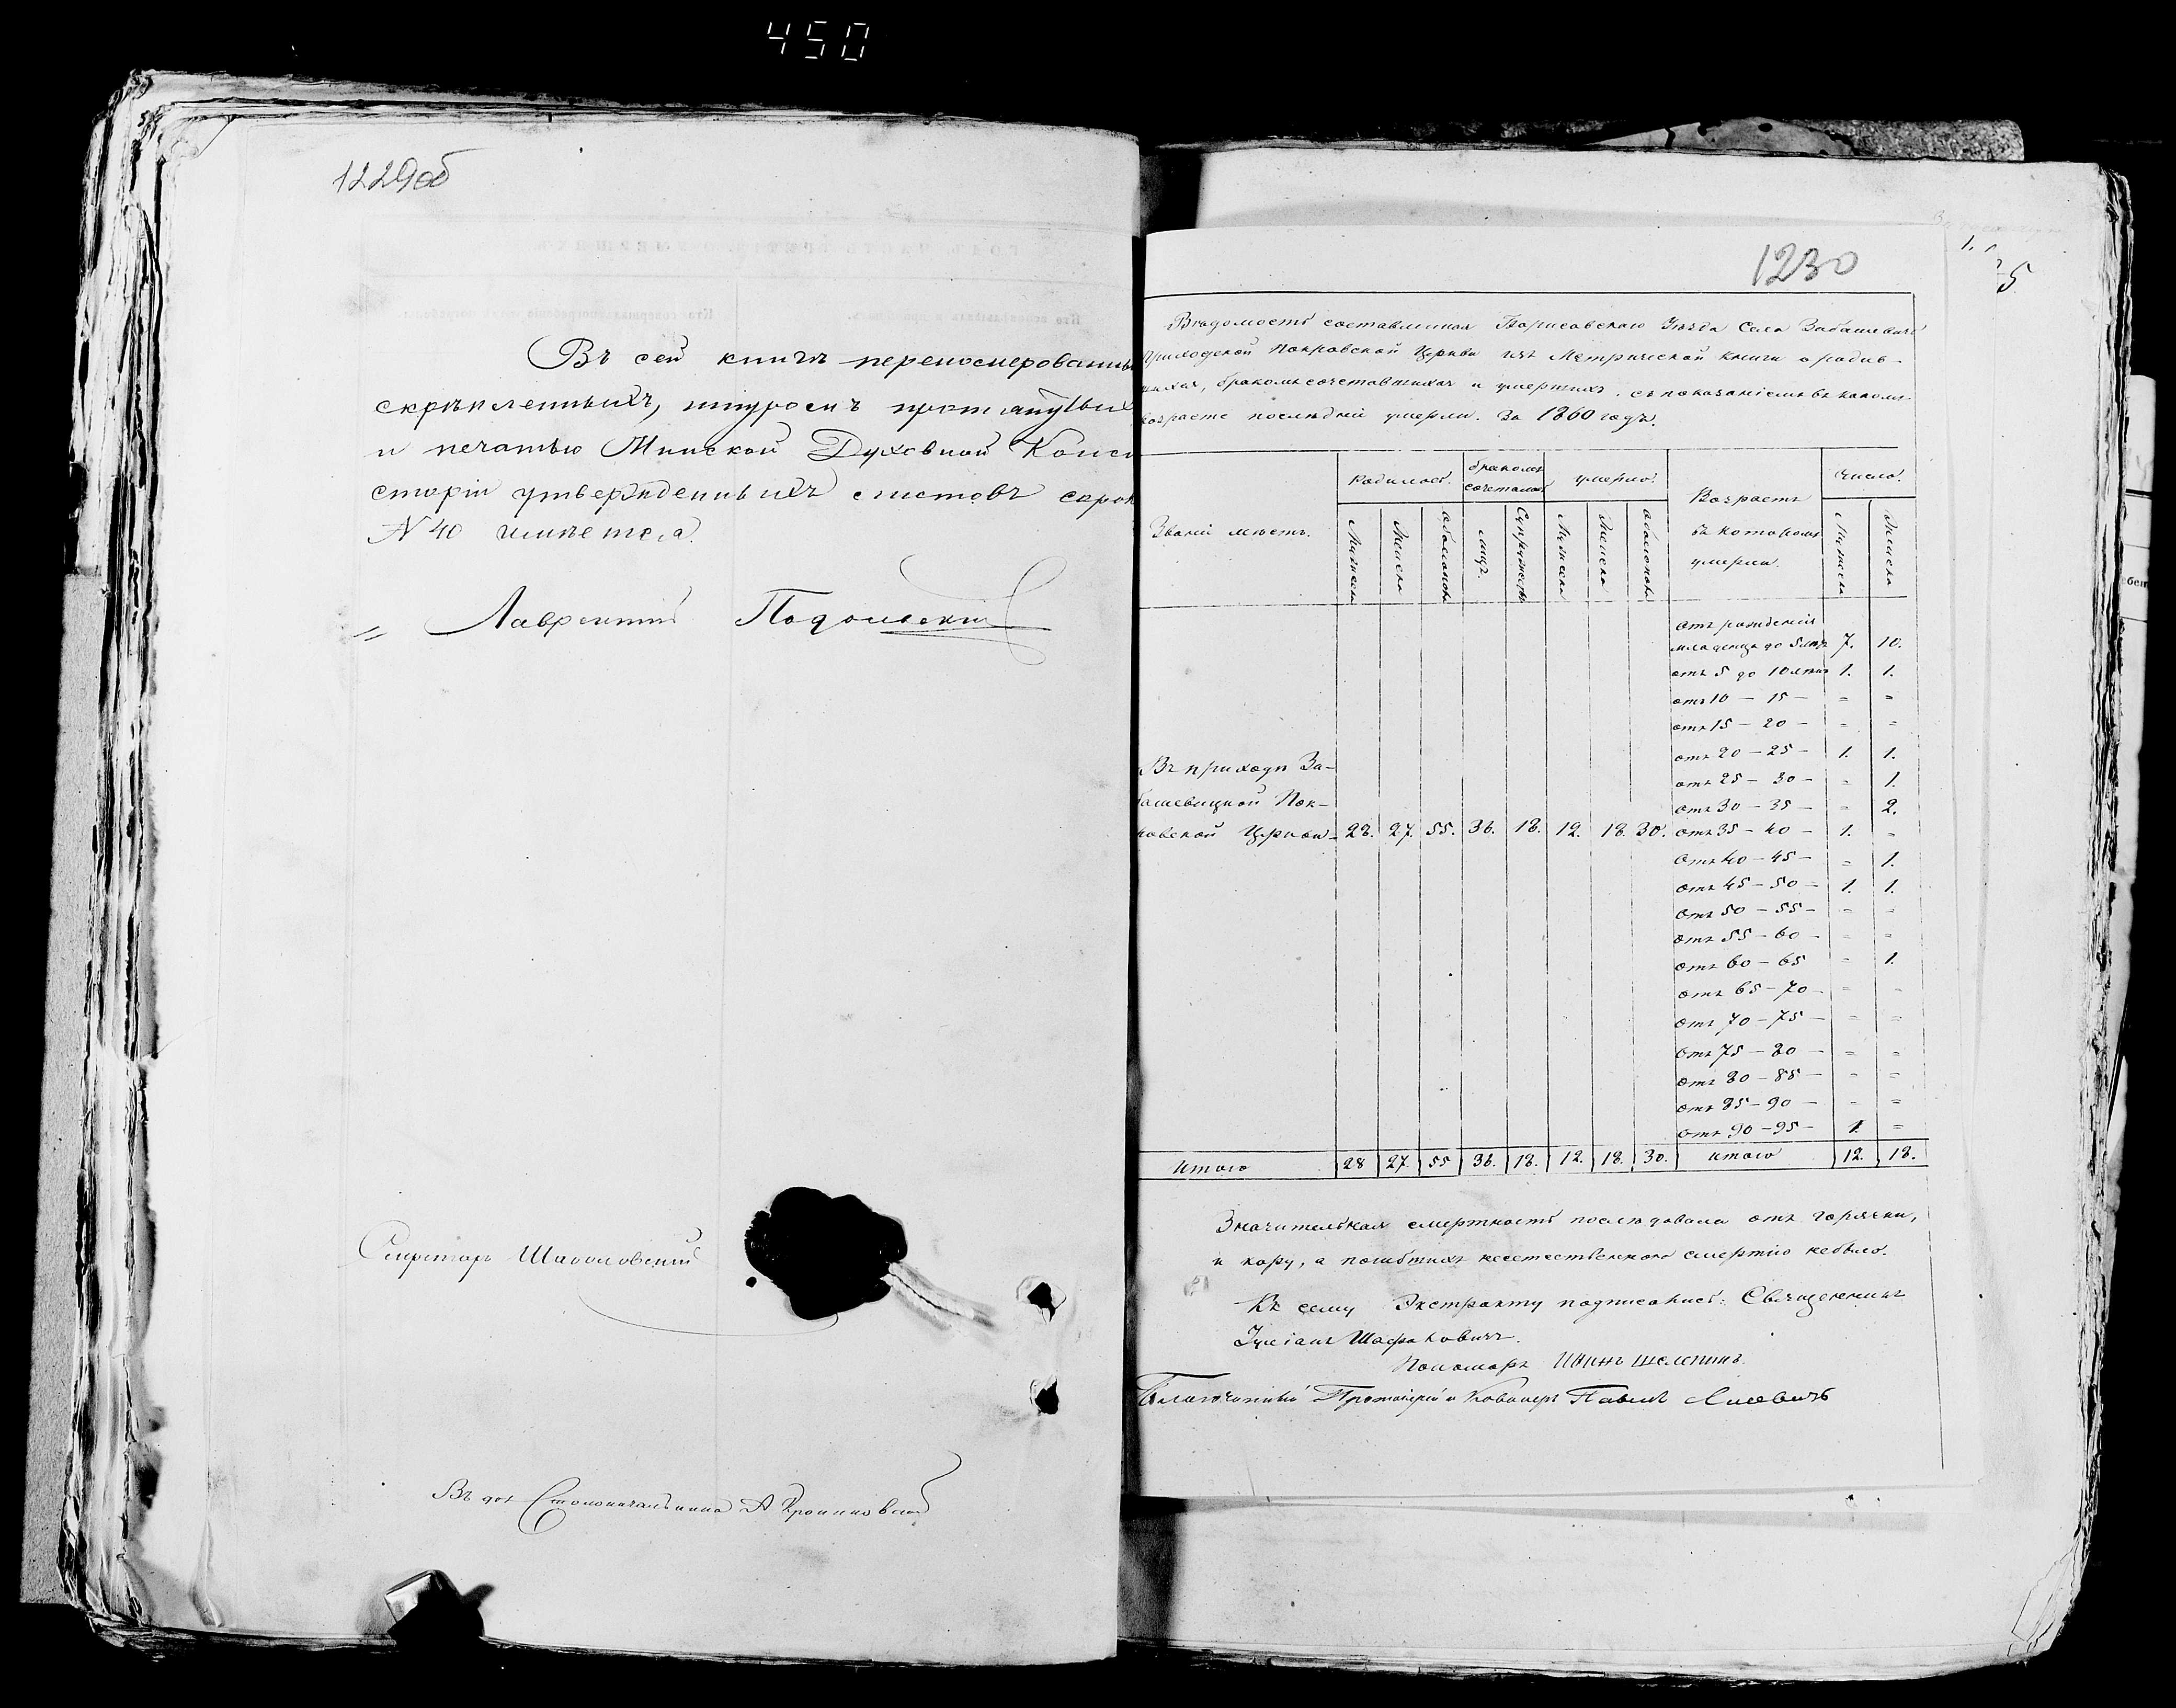 450
1229об
Въ сей книгѣ переномерованны
скрѣпленныхъ, шнуромъ протянутых
и печатью Минской Духовной Конси
сторіи утвержденныхъ листовъ сорок
N 40 имѣется.
Лаврентий Подольский
Секретарь
Въ дол Столоначальника А
1230
Вѣдомость составленная Борисовскаго Уѣзда Села Забашевичъ
Приходской Покровской Церкви изъ Метрической книги о родив-
шихся, бракомъ сочетавшихся и умершихъ, съ показаніемъ въ какомъ
возрасте послѣдніе умерли. За 1860 годъ.
Званій мѣстъ. Родилось. бракомъ сочеталось умерло. Возрастъ въ которомъ умерли. Число.
Мужеска Женска обоегопола лицъ. Супружествъ Мужеска Женска обоегопола Мужеска Женска
отъ рожденія
младенца до 5 лѣтъ 7. 10.
отъ 5 до 10 лѣтъ 1. 1.
отъ 10 — 15 — = =
отъ 15 — 20 — = =
отъ 20 — 25 — 1. 1.
Въ приходѣ За-
отъ 25 — 30 — = 1.
башевицкой Пок-
отъ 30 — 35 — = 2.
ровской Церкви 28. 27. 55. 36. 18. 12. 18. 30. отъ 35 — 40 — 1. =
отъ 40 — 45 — = 1.
отъ 45 — 50 — 1. 1.
отъ 50 — 55 — = =
отъ 55 — 60 — = =
отъ 60 — 65 = 1.
отъ 65 — 70 — = =
отъ 70 — 75 — = =
отъ 75 — 80 — = =
отъ 80 — 85 — = =
отъ 85 — 90 — = =
отъ 90 — 95 — 1. =
Итого 28 27 55 36. 18. 12. 18. 30. итого 12. 18.
Значительная смертность послѣдовала отъ горячки,
и кору, а погибшихъ неестественною смертію небыло.
Къ сему Экстракту подписались: Священникъ
Іуліанъ Шафрановичъ.
Пономарь Иванъ Шелепинъ.
Благочинный Протоіерей и Кавалеръ Павелъ Лисевичъ